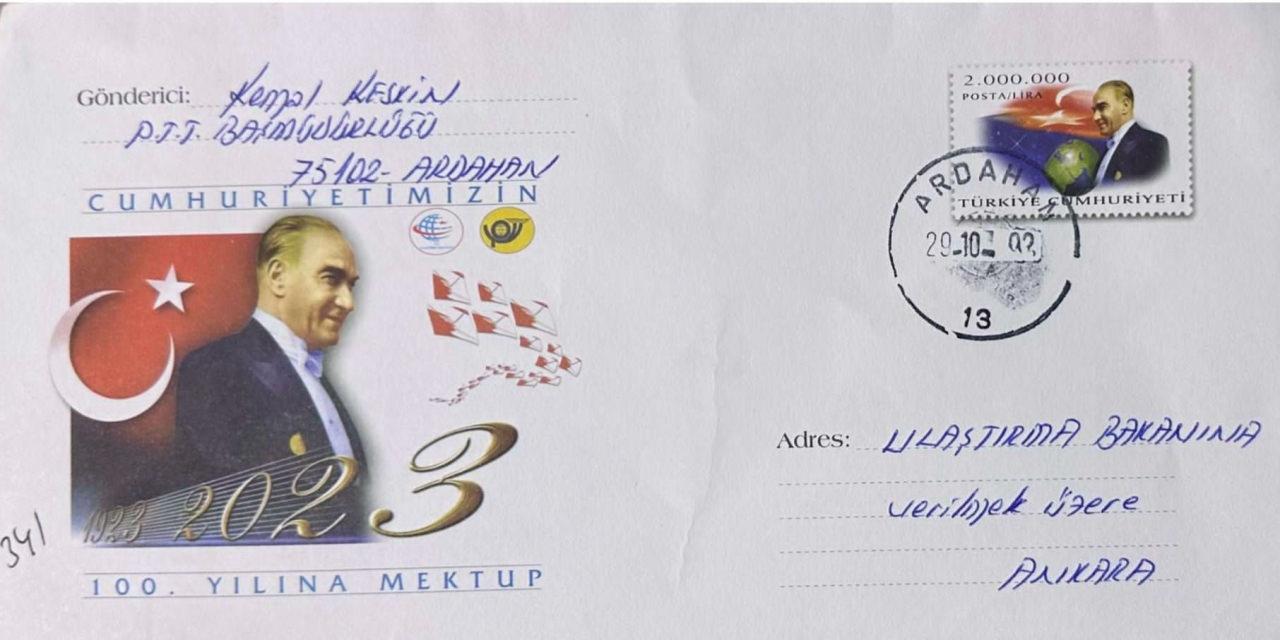 Gönderici: Kemal KESKİN
P.T.T. BAŞMÜDÜRLÜĞÜ
75102- ARDAHAN
CUMHURİYETİMİZİN
1923 2023
100. YILINA MEKTUP
341
2.000.000
POSTA/LİRA
TÜRKİYE CUMHURİYETİ
ARDAHAN
29-10-
13
Adres: ULAŞTIRMA BAKANINA
verilmek üzere
ANKARA